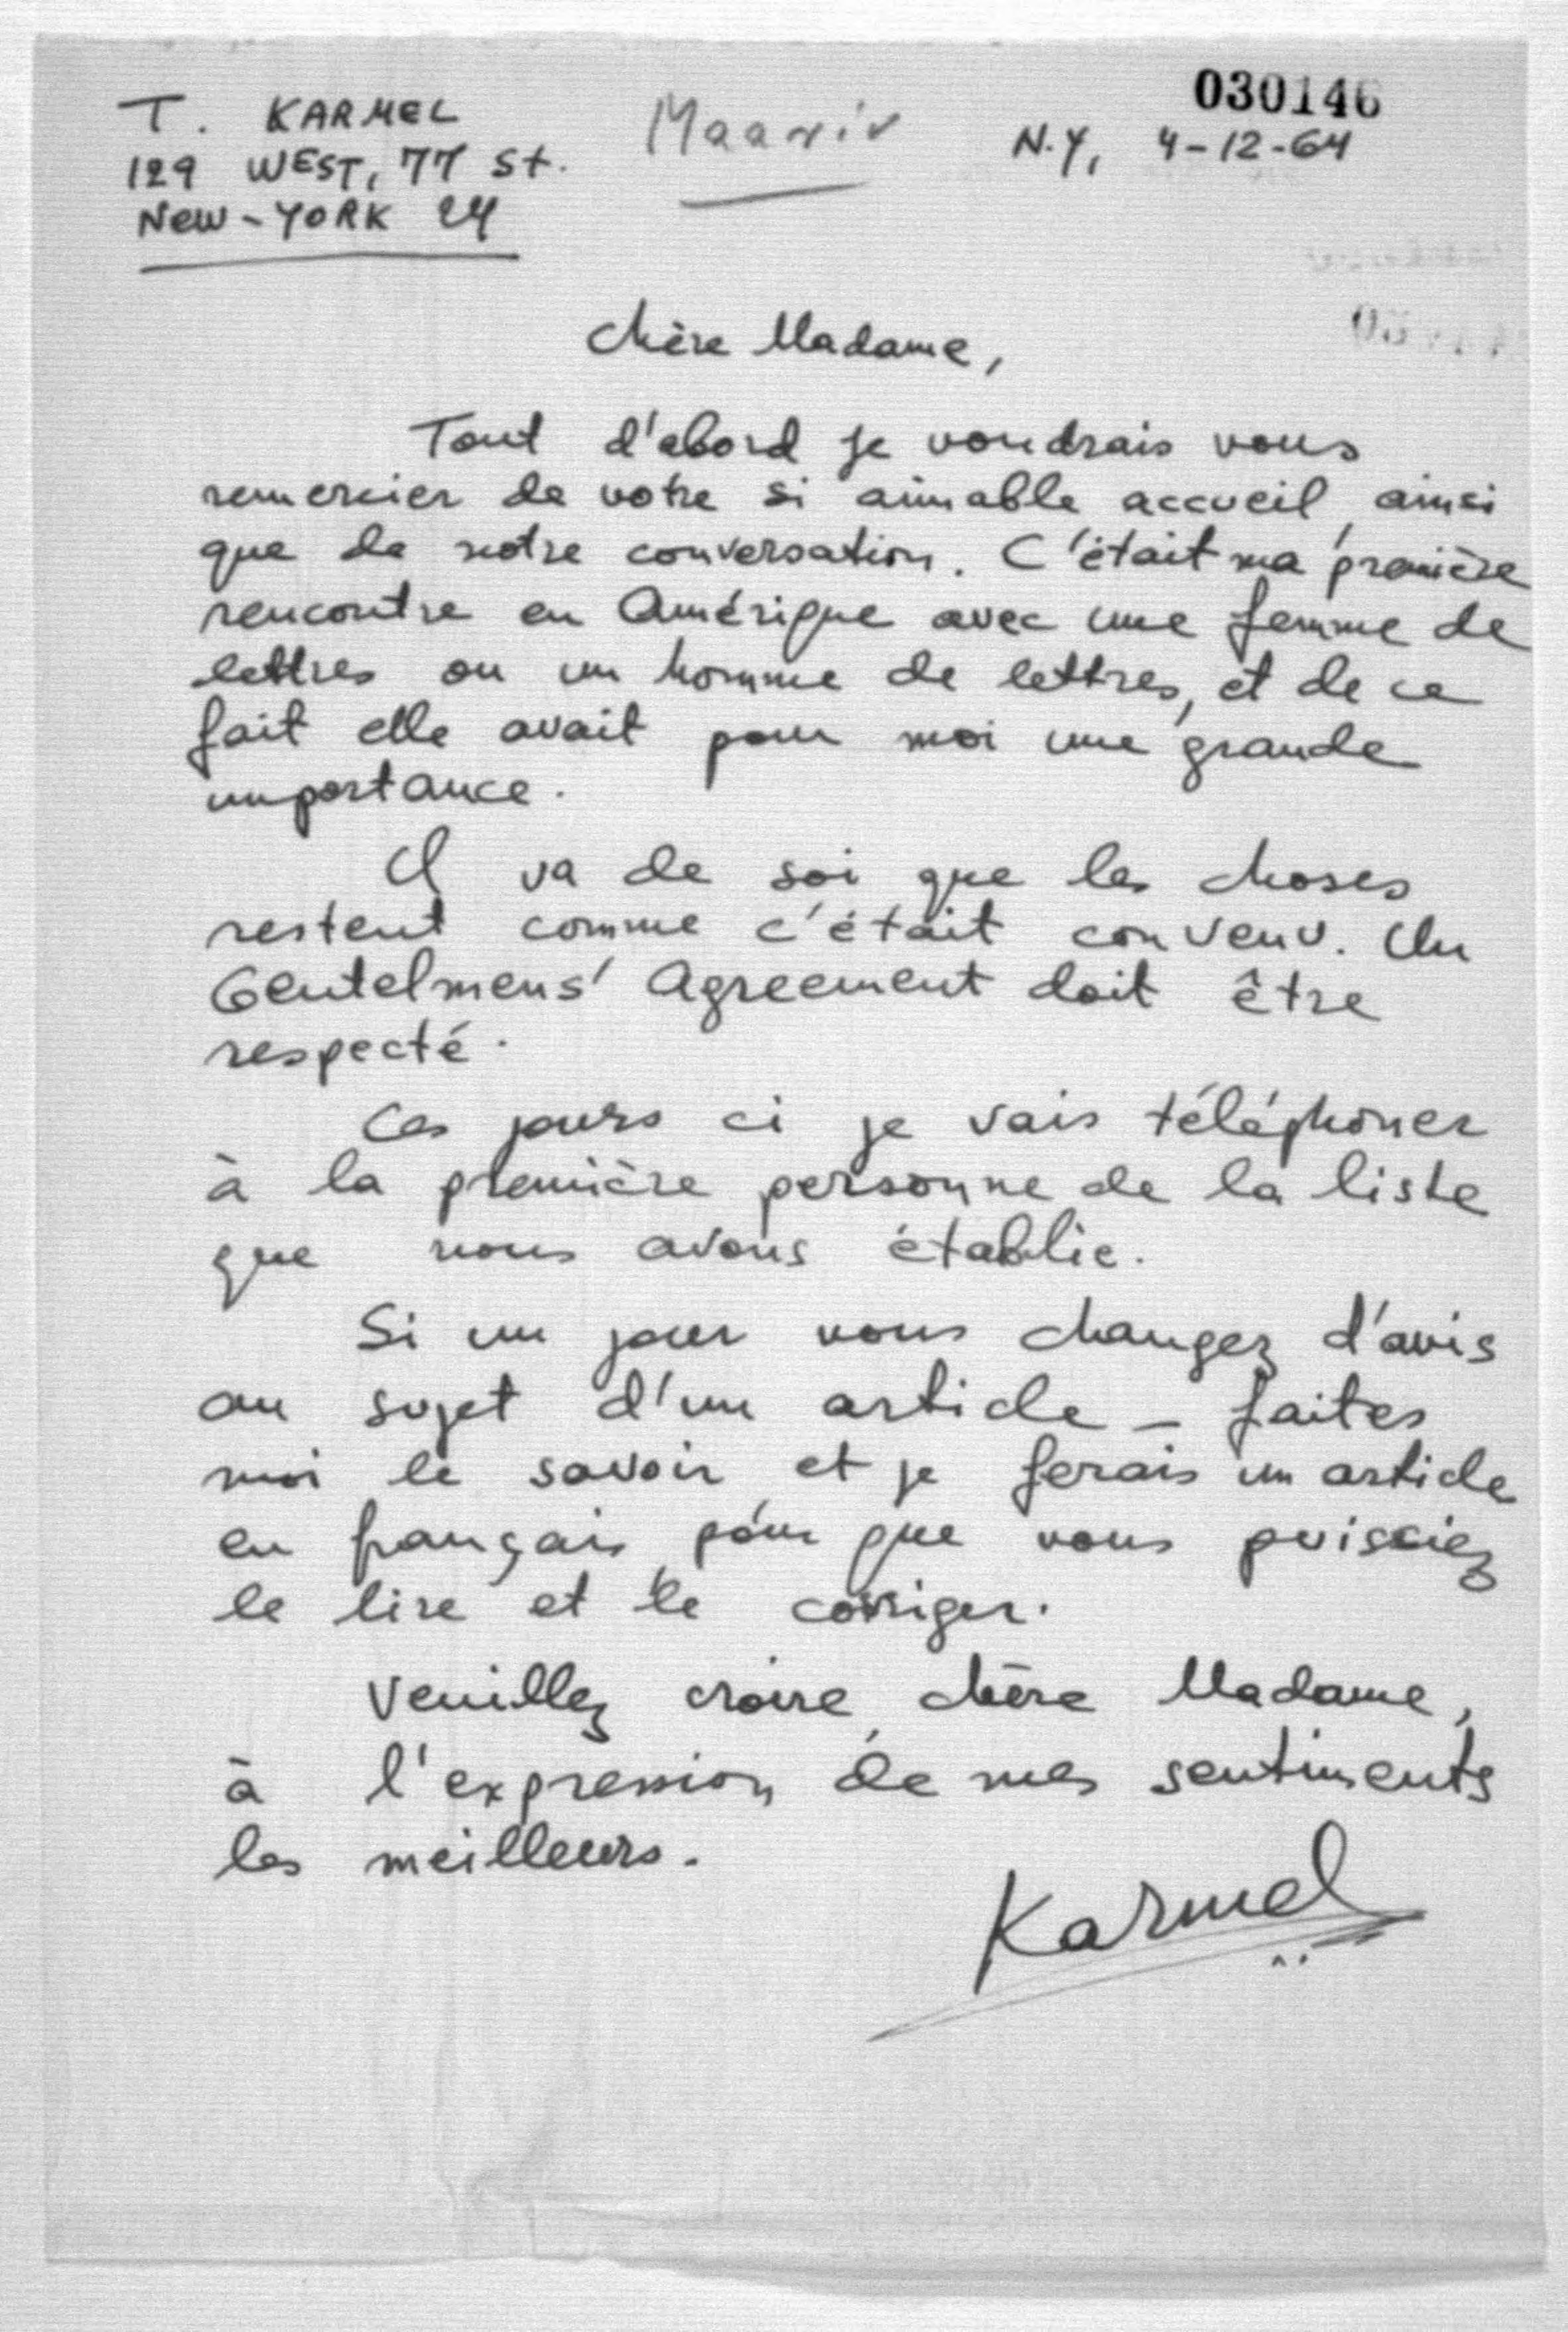 030146
T. KARMEL
Maariv
N.Y, 4-12-64
129 WEST, 77 St.
NEW-YORK 24
Chère Madame,
Tout d'abord je voudrais vous
remercier de votre si aimable accueil, ainsi
que de notre conversation. C'était ma première
rencontre en Amérique avec une femme de
lettres ou un homme de lettres, et de ce
fait elle avait pour moi une grande
importance.
Il va de soi que les choses
restent comme c'était convenu. Un
Gentelmens' Agreement doit être
respecté.
Ces jours ci je vais téléphoner
à la première personne de la liste
que nous avons établie.
Si un jour vous changez d'avis
au sujet d'un article – faites
moi le savoir, et je ferais un article
en français, pour que vous puissiez
le lire et le corriger.
Veuillez croire, chère Madame,
à l'expression de mes sentiments
les meilleurs.
Karmel